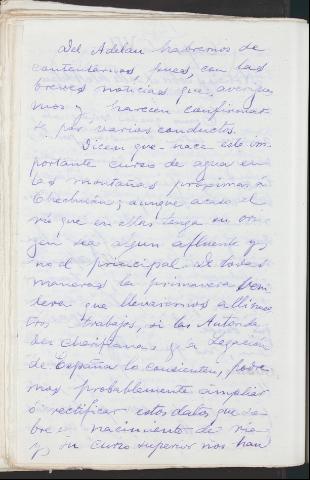 Del Adelau habremos de
contentarnos, pues, con las
breves noticias que averigua
mos y parecen confirmar
se por varios conductos.
Dicen que nace este im
portante curso de agua en
las montañas próximas á
Chechuán; aunque acaso el
río que en ellas tenga su ori
gen sea algun afluente y
no el principal. De todas
maneras la primavera
que llevaremos alli nues
tros trabajos, si las Autorida
des Cherifianas y la Legación
de España lo consienten, podre
mos probablemente ampliar
ó rectificar estos datos que so
bre el nacimiento de río
y su curso superior nos han